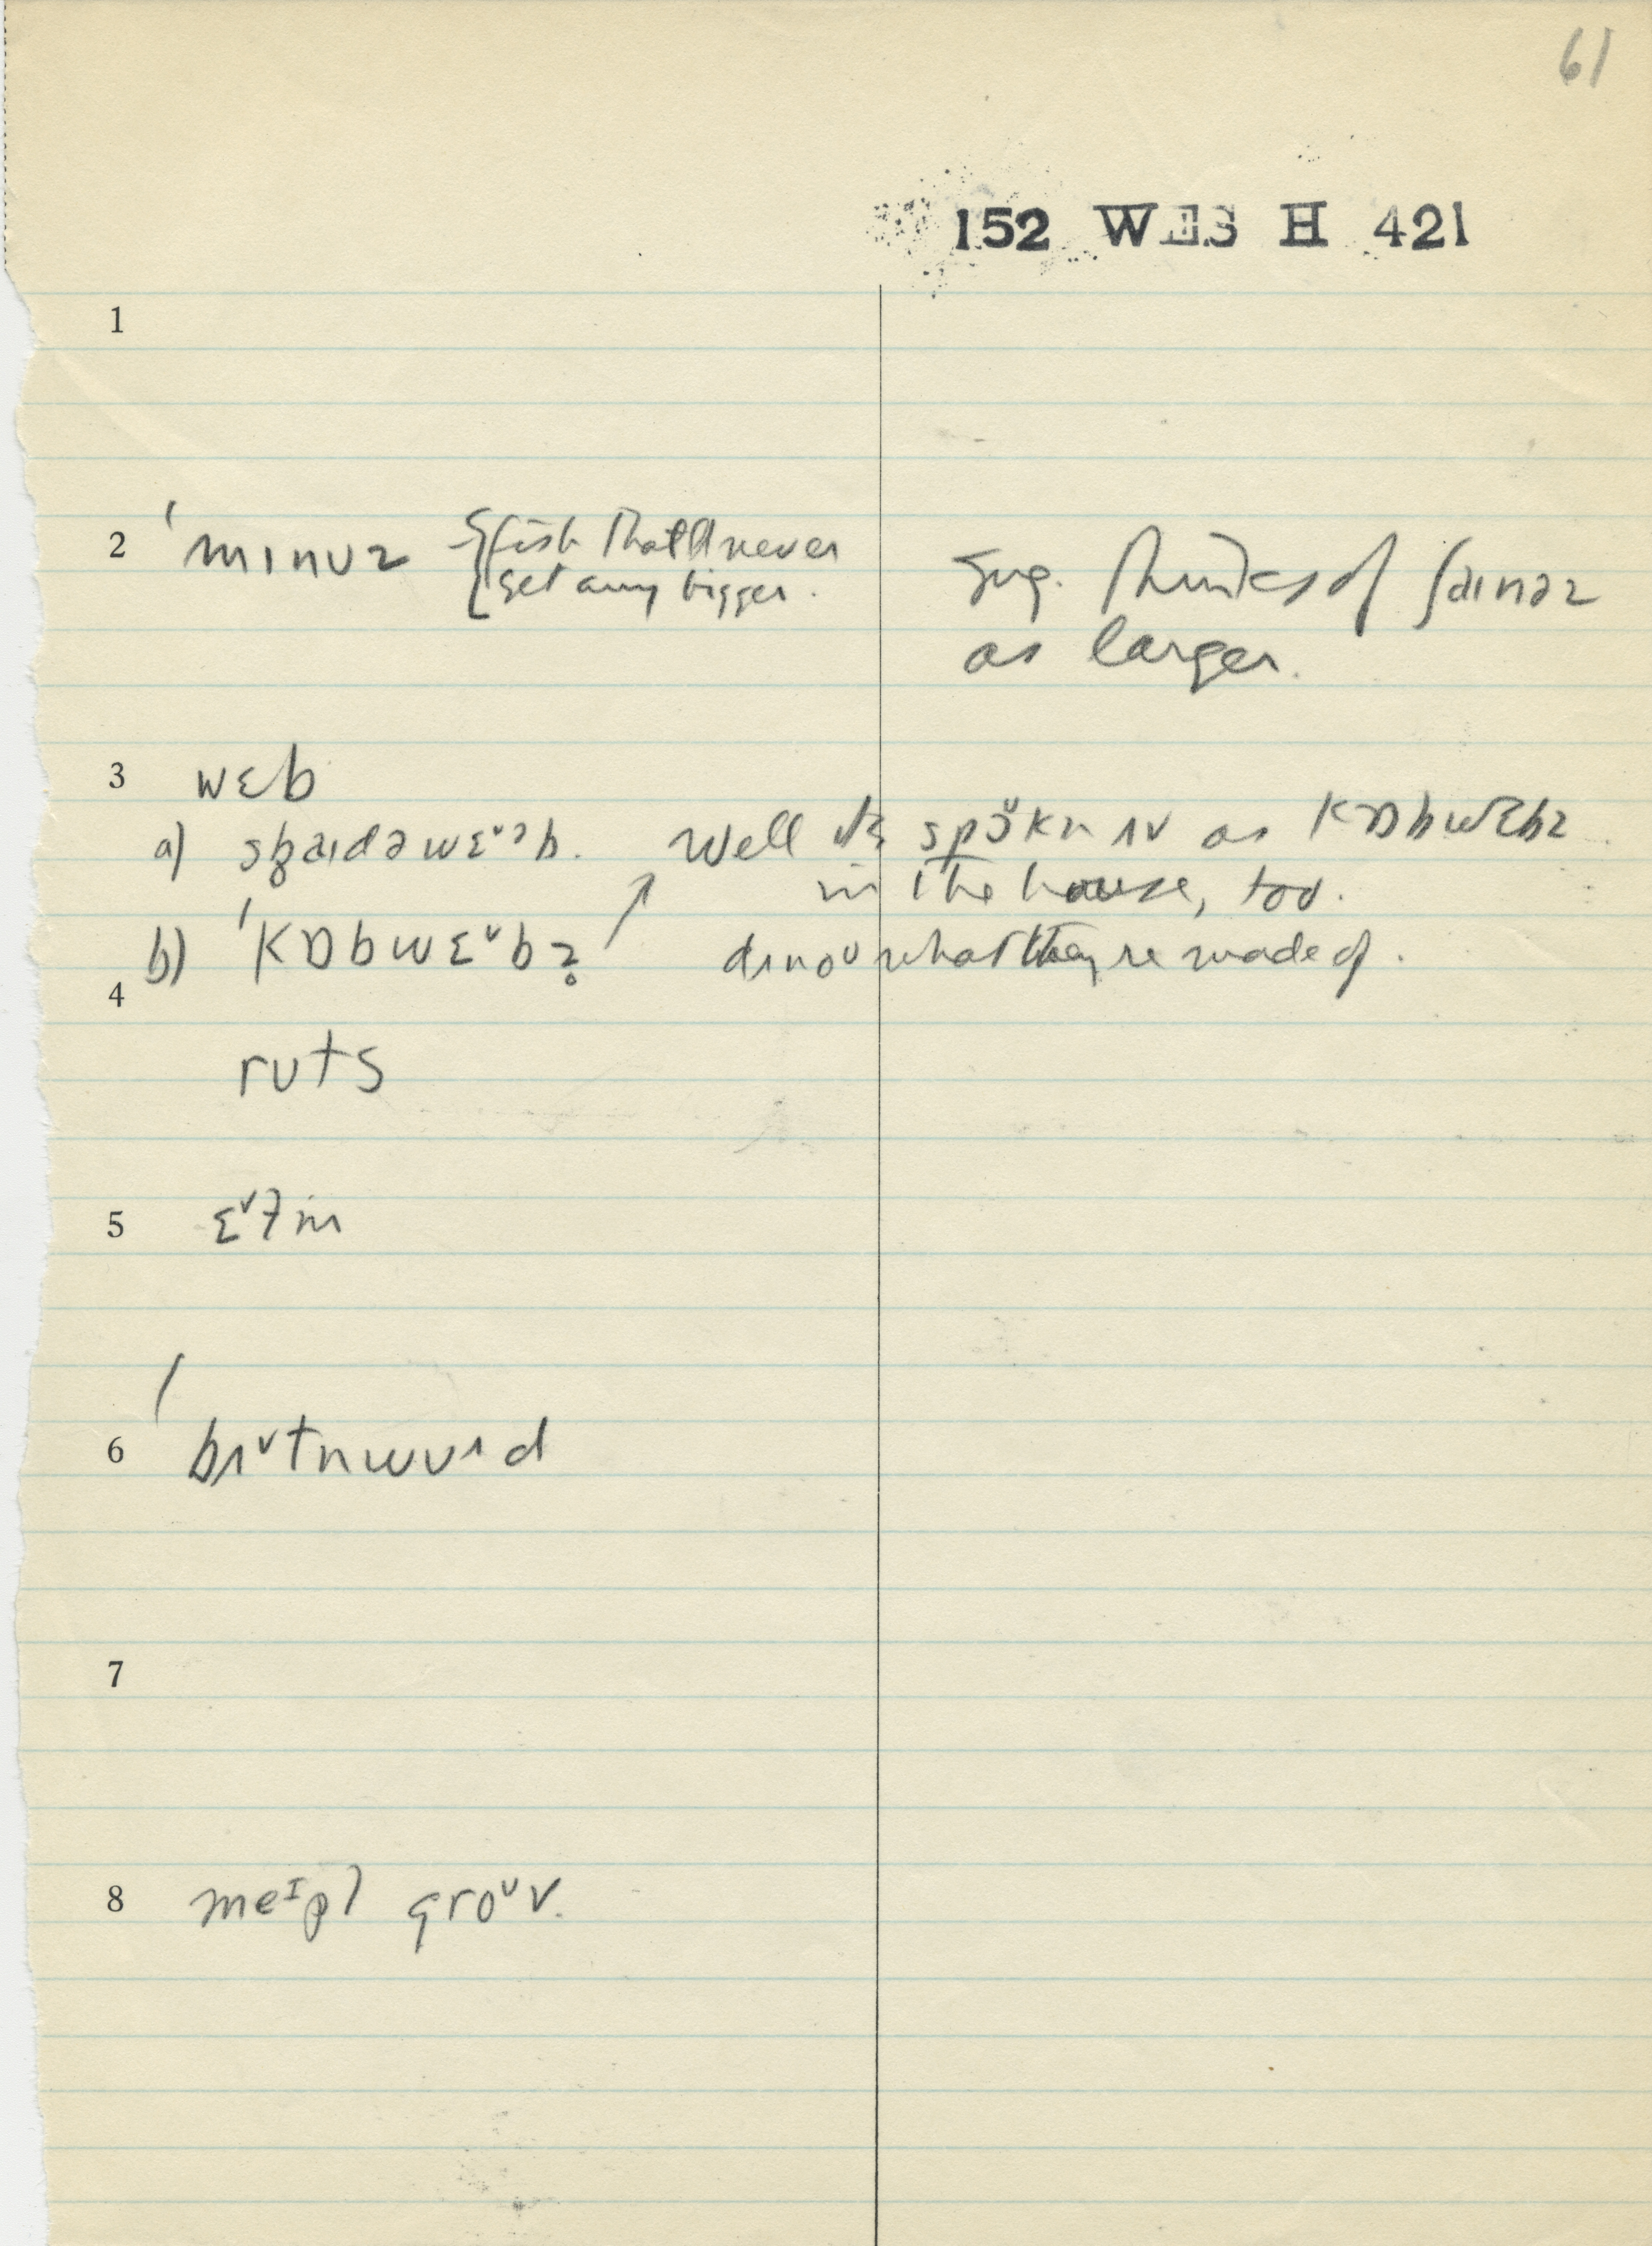 61
152 WES H 421
1
2 ˈmɪnʊz {fish that'll never
get any bigger.
Sug. thinks of ʃaɪnəz
as larger.
3 wɛb
a) spaɪdəwɛˇᵊb. Well it's spoˇkn ʌv as kɒbwɛbz
in the house, too.
b) ˈkɒbwɛˇbz̥ dʌnoʊ what they're made of.
4
ruts
5 ɛˇlm
6 ˈbʌˇtnwʊᶺd
7
8 meᴵpl groᵘv.